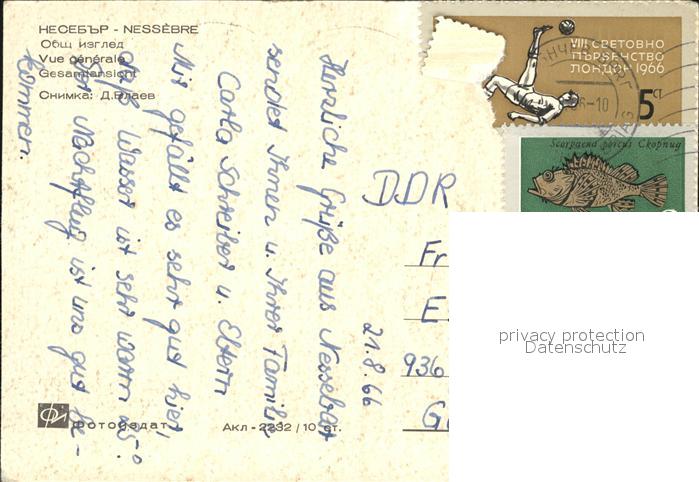 НЕСЕБЪР - NESSÈBRE
Общ изглед
Vue générale
Gesamtansicht
Снимка: Д.Влаев
VIII СВЕТОВНО
ПЪРВЕНСТВО
ЛОНДОН 1966
5 СТ.
6-10
Scorpaena porcus Скорпид
Herzliche Grüße aus Nessebar
sendet Ihnen u. Ihrer Familie
Carla Schreiber u. Eltern
Mir gefällt es sehr gut hier!
Das Wasser ist sehr warm 25°
Der Nachtflug ist uns gut be-
kommen.
21.8.66
DDR
Fr
E
936
G
privacy protection
Datenschutz
Фотоиздат
Акл - 2232 / 10 ст.